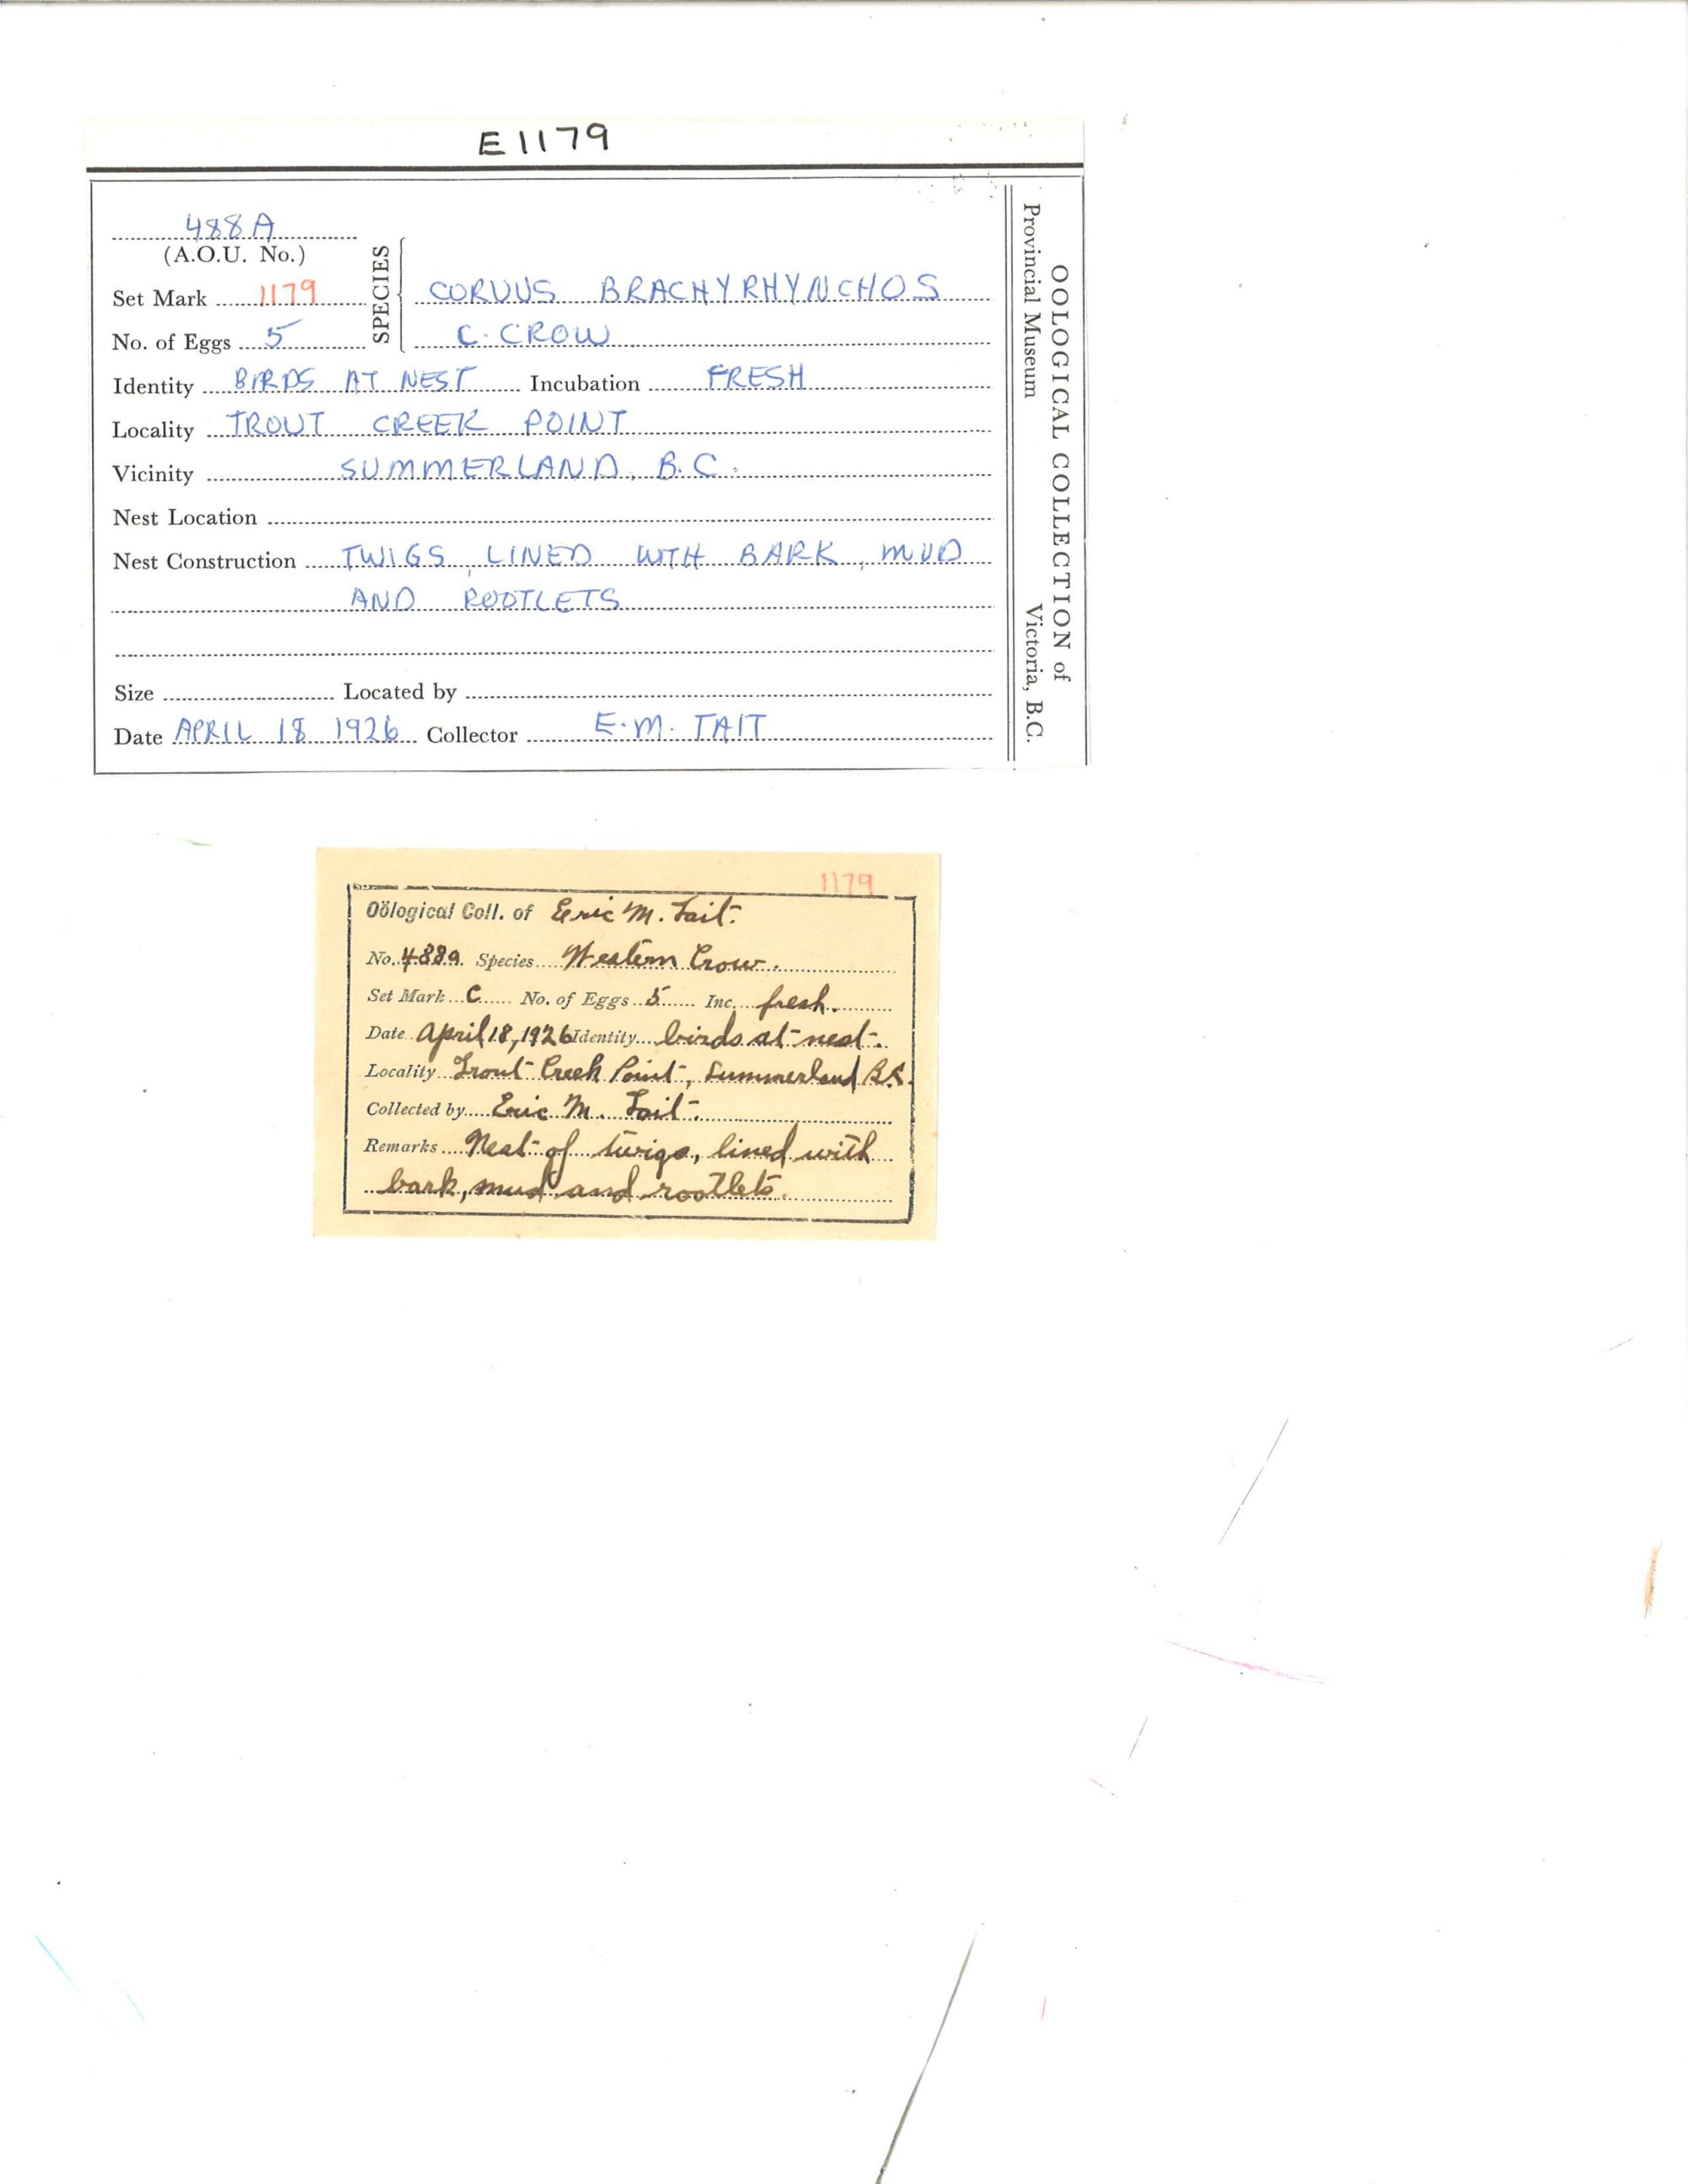 E1179
488A
(A.O.U. No.)
Set Mark 1179
No. of Eggs 5
SPECIES
CORVUS BRACHYRHYNCHOS
C. CROW
Identity BIRDS AT NEST Incubation FRESH
Locality TROUT CREEK POINT
Vicinity SUMMERLAND, B.C.
Nest Location
Nest Construction TWIGS, LINED WITH BARK, MUD
AND ROOTLETS
Size Located by
Date APRIL 18 1926 Collector E.M. TAIT
OOLOGICAL COLLECTION of
Provincial Museum Victoria, B.C.
1179
Oölogical Coll. of Eric M. Tait.
No. 488a. Species Western Crow.
Set Mark C No. of Eggs 5 Inc. fresh.
Date April 18, 1926 Identity birds at nest.
Locality Trout Creek Point, Summerland B.C.
Collected by Eric M. Tait.
Remarks Nest of twigs, lined with
bark, mud and rootlets.